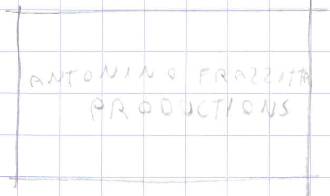 ANTONINO FRAZZITTA
PRODUCTIONS